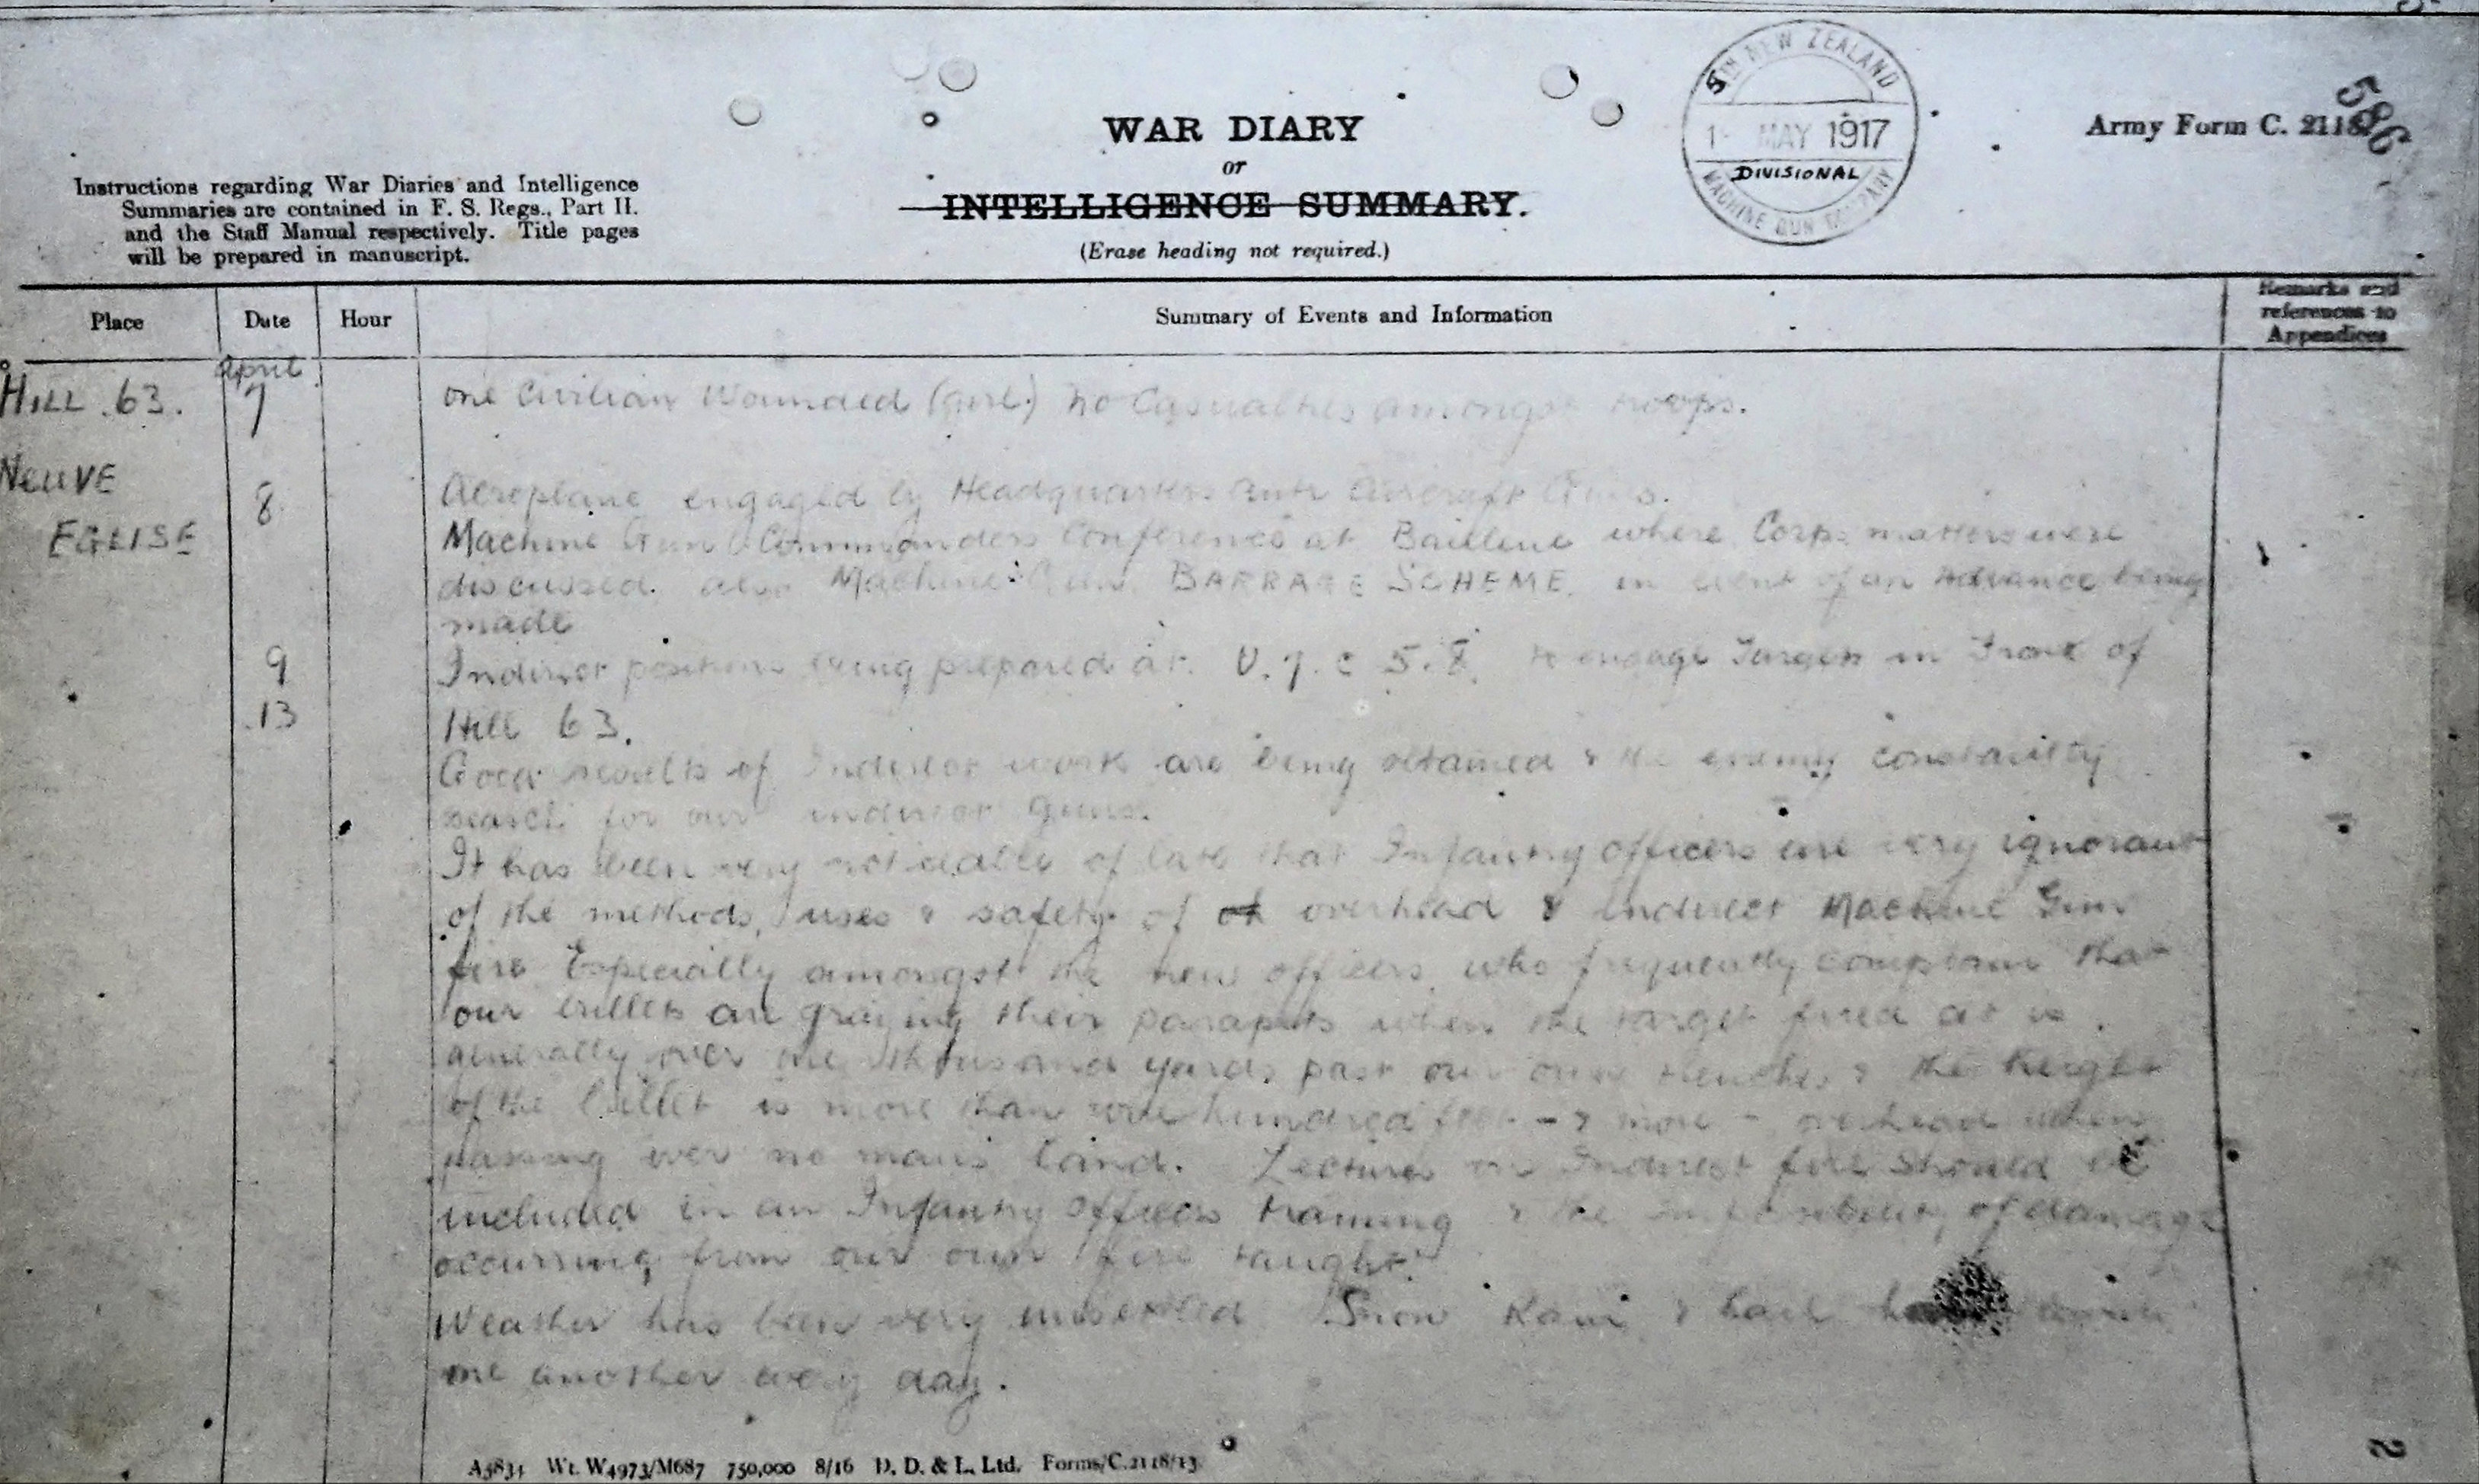 5TH NEW ZEALAND
1- MAY 1917
DIVISIONAL
MACHINE GUN COMPANY
586
Army Form C. 2118.
WAR DIARY
or
INTELLIGENCE SUMMARY.
(Erase heading not required.)
Instructions regarding War Diaries and Intelligence
Summaries are contained in F. S. Regs., Part II.
and the Staff Manual respectively. Title pages
will be prepared in manuscript.
Place Date Hour Summary of Events and Information Remarks and
references to
Appendices
April
HILL .63. 7 one Civilian Wounded (girl.) no Casualties amongst troops.
NEUVE
EGLISE
8 Aeroplane engaged by Headquarters Anti Aircraft Guns.
Machine Gun Commanders Conference at Bailleul where Corps matters were
discussed. also Machine Gun BARRAGE SCHEME in event of an Advance being
made
9 Indirect positions being prepared at U.7.c 5.8. to engage Targets in Front of
13 Hill 63.
Good results of Indirect work are being obtained & the enemy constantly
search for our indirect guns.
It has been very noticeable of late that Infantry officers are very ignorant
of the methods, uses & safety of of overhead & indirect Machine Gun
fire Especially amongst the new officers, who frequently complain that
our bullets are grazing their parapets when the target fired at is
generally over one thousand yards past our own trenches & the height
of the bullet is more than one hundred feet - & more - overhead when
passing over no mans land. Lectures on Indirect fire should be
included in an Infantry officers training & the impossibility of damage
occurring from our own fire taught.
Weather has been very unsettled Snow Rain & hail
one another every day.
A5834 Wt. W4973/M687 750,000 8/16 D. D. & L. Ltd. Forms/C.2118/13.
2